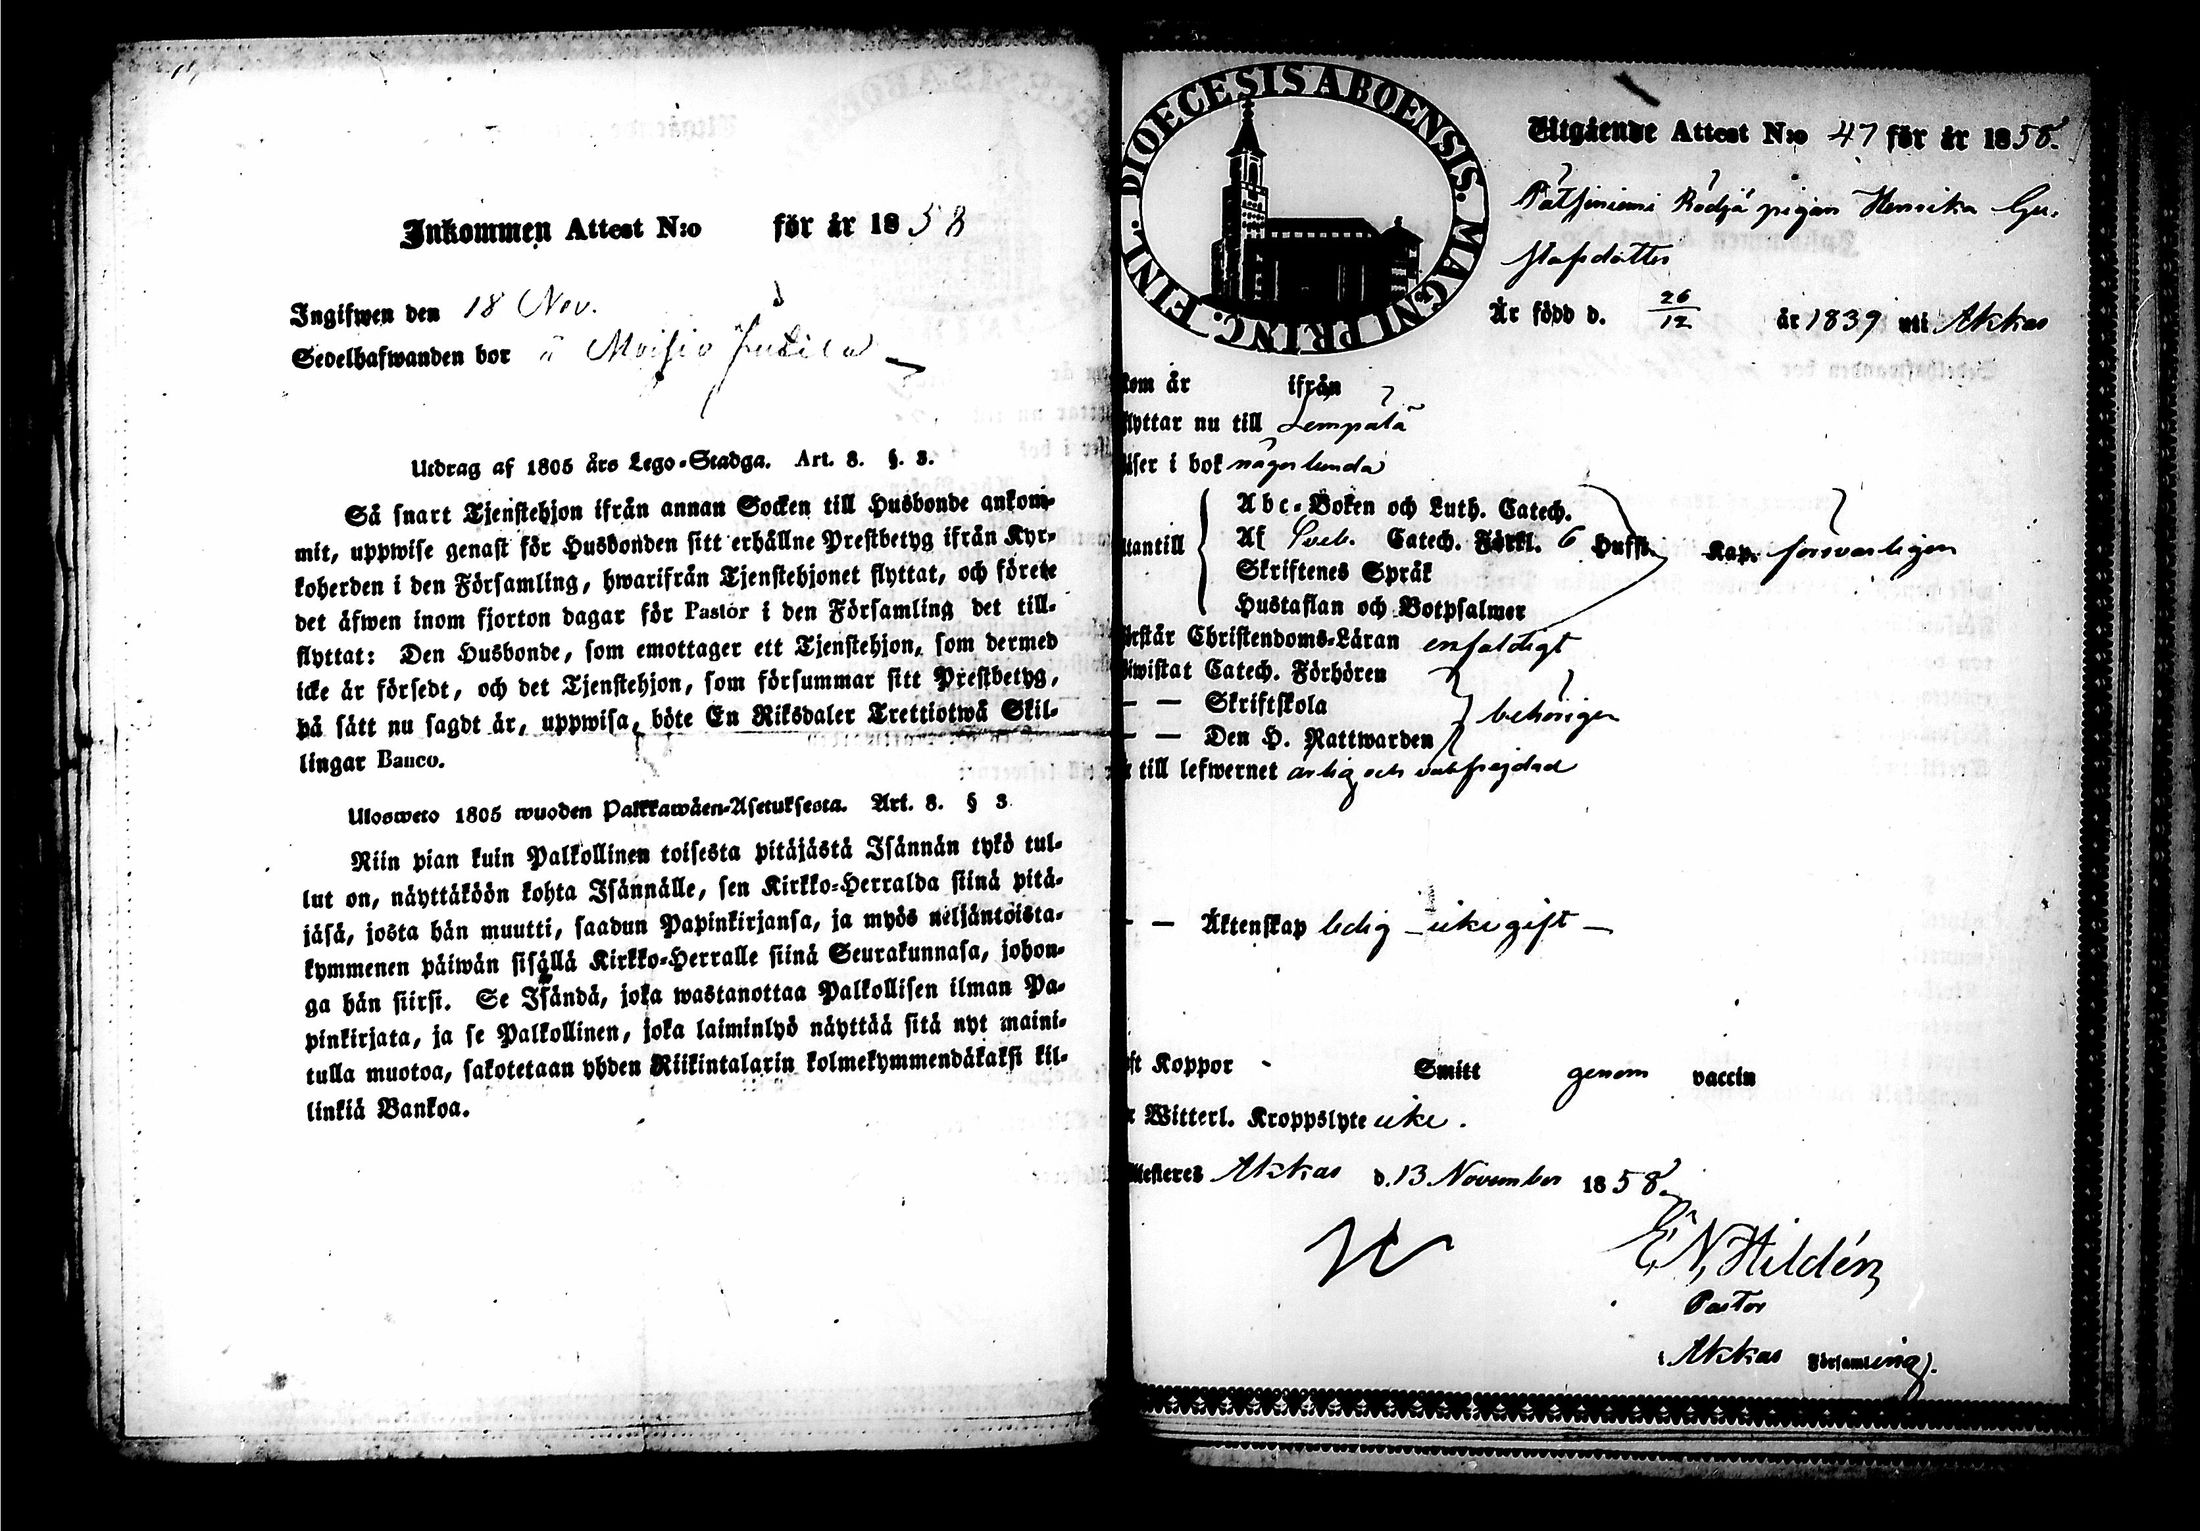 Inkommen Attest N:o för år 1858
Ingifwen den 18 Nov.
Sedelhafwanden bor å Moisio Jutila
Utdrag af 1805 års Lego-Stadga. Art. 8. §. 3.
Så snart Tjenstehjon ifrån annan Socken till Husbonde ankom-
mit, uppwise genast för Husbonden sitt erhållne Prestbetyg ifrån Kyr-
koherden i den Församling, hwarifrån Tjenstehjonet flyttat, och förete
det äfwen inom fjorton dagar för Pastor i den Församling det till-
flyttat: Den Husbonde, som emottager ett Tjenstehjon, som dermed
icke är försedt, och det Tjenstehjon, som försummar sitt Prestbetyg,
på sätt nu sagdt är, uppwisa, böte En Riksdaler Trettiotwå Skil-
lingar Banco.
Ulosweto 1805 wuoden Palkkawäen-Asetuksesta. Art. 8. § 3
Niin pian kuin Palkollinen toisesta pitäjästä Isännän tykö tul-
lut on, näyttäköön kohta Isännälle, sen Kirkko-Herralda siinä pitä-
jäsä, josta hän muutti, saadun Papinkirjansa, ja myös neljäntoista-
kymmenen päiwän sisällä Kirkko-Herralle siinä Seurakunnasa, johon-
ga hän siirsi. Se Isändä, joka wastanottaa Palkollisen ilman Pa-
pinkirjata, ja se Palkollinen, joka laiminlyö näyttää sitä nyt maini-
tulla muotoa, sakotetaan yhden Riikintalarin kolmekymmendäkaksi kil-
linkiä Bankoa.
DIOECESIS ABOENSIS. MAGNI PRINC. FINL.
Utgående Attest N:o 47 för år 1858.
Rödjä pigan Henrika Gu-
stafsdotter
Är född d. 26/12 år 1839 uti Akkas
kom år ifrån
flyttar nu till Lempälä
läser i bok någorlunda
utantill
Abc-Boken och Luth. Catech.
Af Sveb. Catech. Förkl. 6 Hufst. Kap. försvarligen
Skriftenes Språk
Hustaflan och Botpsalmer
förstår Christendoms-Läran enfaldigt
biwistat Catech. Förhören
— — Skriftskola behörigen
— — Den H. Nattwarden
är till lefwernet ärlig och välfrejdad
— — Äktenskap ledig — icke gift —
haft Koppor - Smitt genom vaccin
är Witterl. Kroppslyte icke.
Attesteres Akkas d. 13 November 1858.
E. N. Hildén
Pastor
i Akkas Församling).